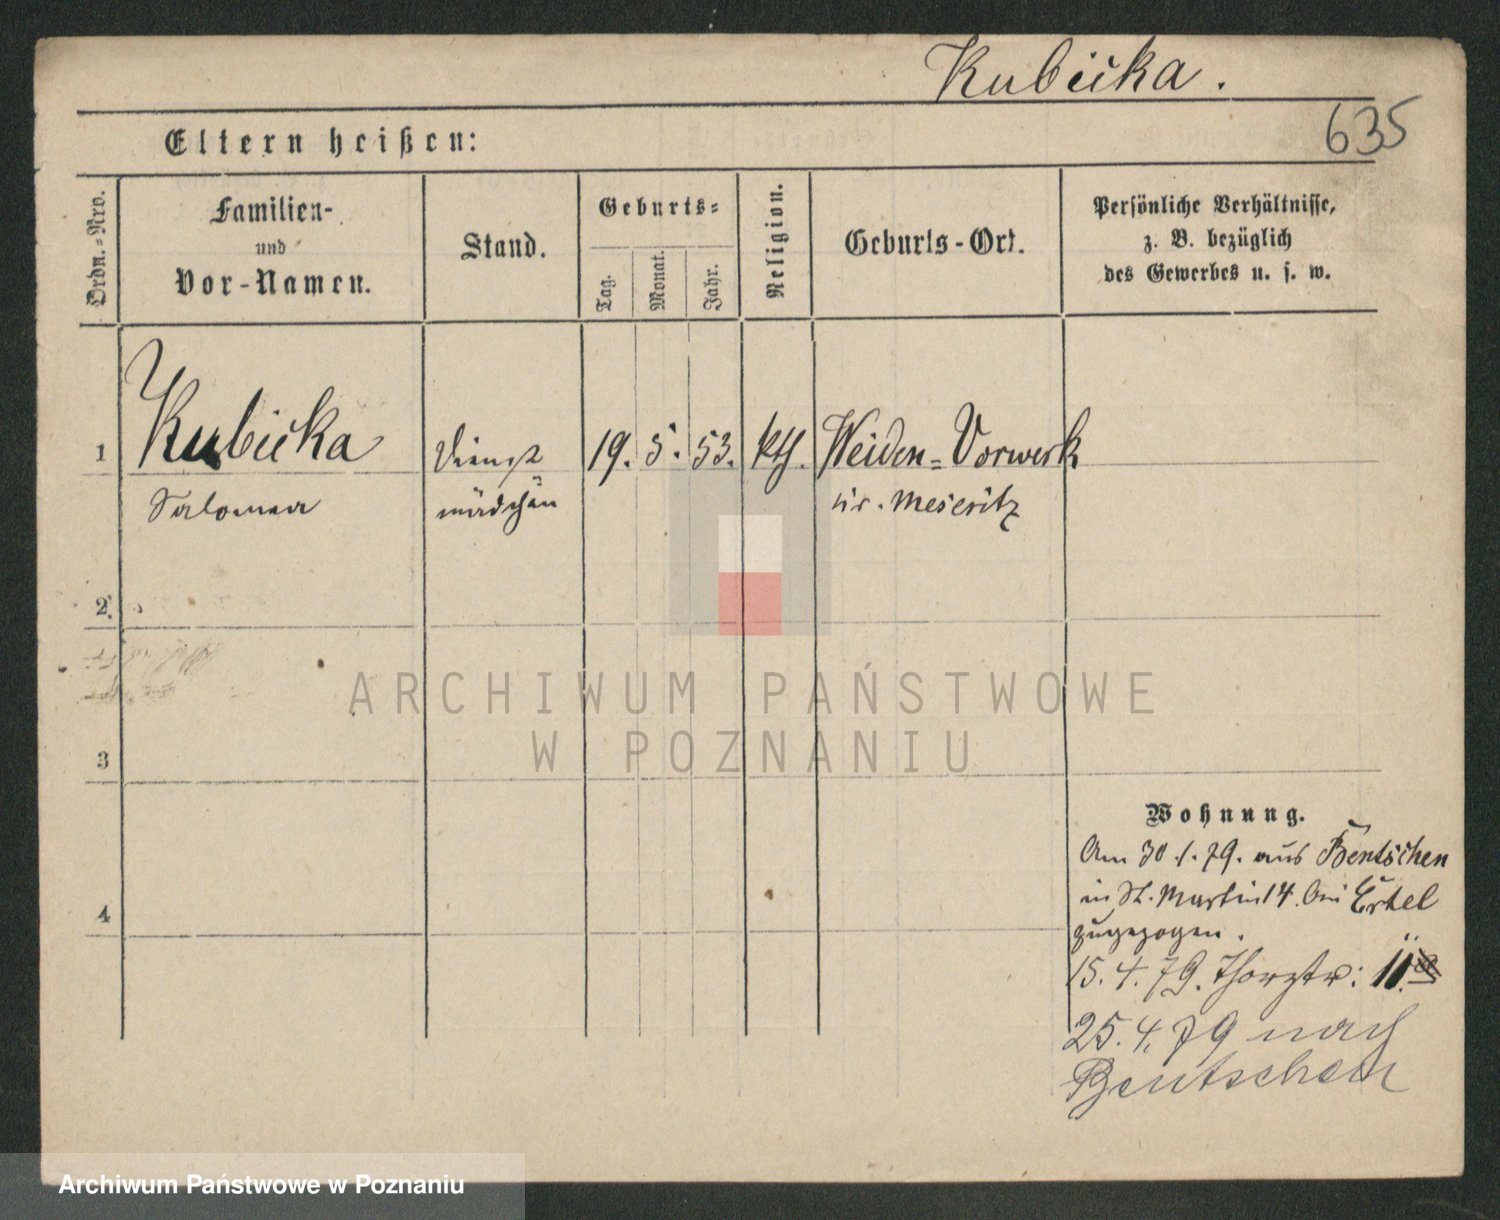 Kubicka.
635
Eltern heißen:
Ordn.=Nro.
Familien-
und
Vor-Namen.
Stand.
Geburts=
Tag.
Monat.
Jahr.
Religion.
Geburts-Ort.
Persönliche Verhältnisse,
z. B. bezüglich
des Gewerbes u. s. w.
1 Kubicka Dienst 19. 5. 53. kth. Weiden=Vorwerk
Salomea mädchen Kr. Meseritz
2
3
4
Wohnung.
Am 30.1.79. aus Bentschen
in St. Martin 14. bei Ertel
zugezogen.
15.4.79. Thorstr: 11
25.4.79 nach
Bentschen
ARCHIWUM PAŃSTWOWE
W POZNANIU
Archiwum Państwowe w Poznaniu